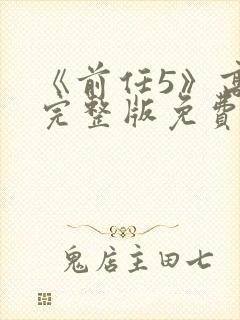 《前任5》高
完整版免費
鬼店主田七